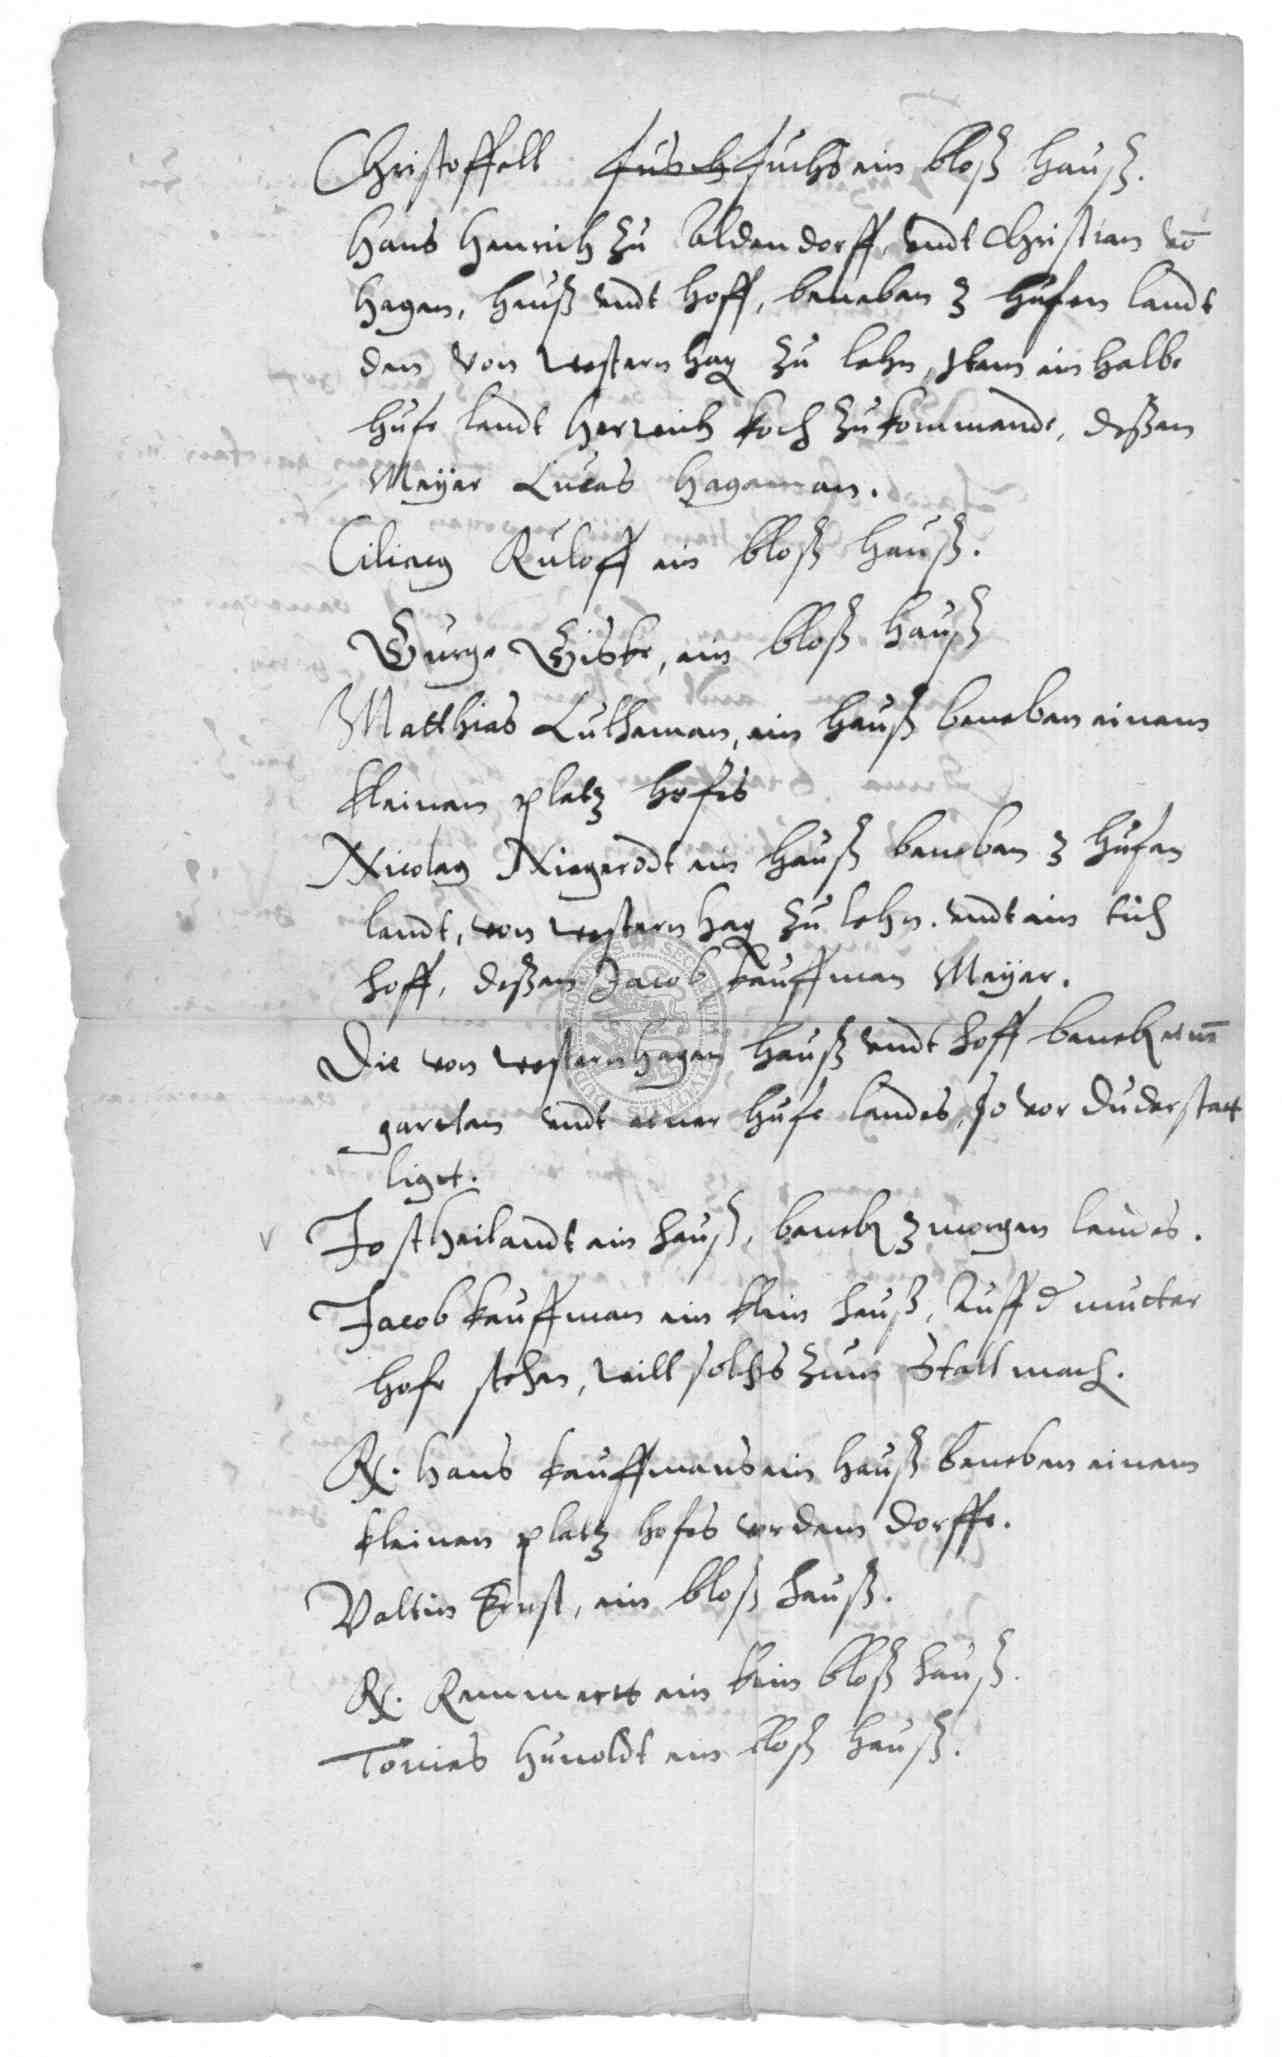 Christoffell Fusch Fuchs ein bloß hauß.
Hans Henrich zu Aldendorff vndt Christian vō
Hagen, hauß vndt hoff, beneben 3 hufen landt
den von Westernhag zu lehn, Item ein halbe
hufe landt Henrich Koch zukommende, deßen
Meÿer Lucas Hageman.
Ciliacq Ruloff ein bloß hauß.
Gurge Giske, ein bloß hauß
Matthias Lutheman, ein hauß beneben einem
kleinen platz hofes
Nicolaq Niegerodt ein hauß beneben 3 hufen
landt, von Westernhag zu lehn. vndt ein
hoff, deßen Jacob Kauffman Meÿer.
Die von Westernhagen hauß vndt hoff beneb einē
garten vndt einer hufe landes, so vor Duderstatt
liget.
Jost Heilandt ein hauß, beneb 3 morgen landes.
Jacob Kauffman ein klein hauß, Auff d mutter
hofe stehen, will solchs zum Stall mach.
R. Hans Kauffmans ein hauß beneben einem
kleinen platz hofes vor dem dorffe.
Valtin Ernst, ein bloß hauß.
R. Remmertt ein klein bloß hauß.
Tonies Hunoldt ein bloß hauß.